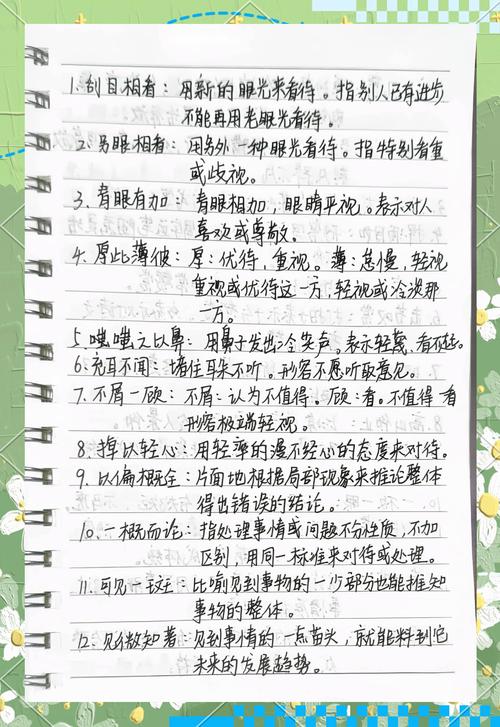 1. 刮目相看：用新的眼光来看待。指别人已有进步
不能再用老眼光看待。
2. 另眼相看：用另外一种眼光看待。指特别看重
或歧视。
3. 青眼有加：青眼相加，眼睛平视。表示对人
喜欢或尊敬。
4. 厚此薄彼：厚：优待，重视。薄：怠慢，轻视
重视或优待这一方，轻视或冷淡那
一方。
5. 嗤嗤之以鼻：用鼻子发出冷笑声。表示轻蔑、看不起。
6. 充耳不闻：堵住耳朵不听。形容不愿听取意见。
7. 不屑一顾：不屑：认为不值得。顾：看。不值得一看
形容极端轻视。
8. 掉以轻心：用轻率的漫不经心的态度来对待。
9. 以偏概全：片面地根据局部现象来推论整体
得出错误的结论。
10. 一概而论：指处理事情或问题不分性质，不加
区别，用同一标准来对待或处理。
11. 可见一斑：比喻见到事物的一少部分也能推知
事物的整体。
12. 见微知著：见到事情的一点苗头，就能料到它
未来的发展趋势。